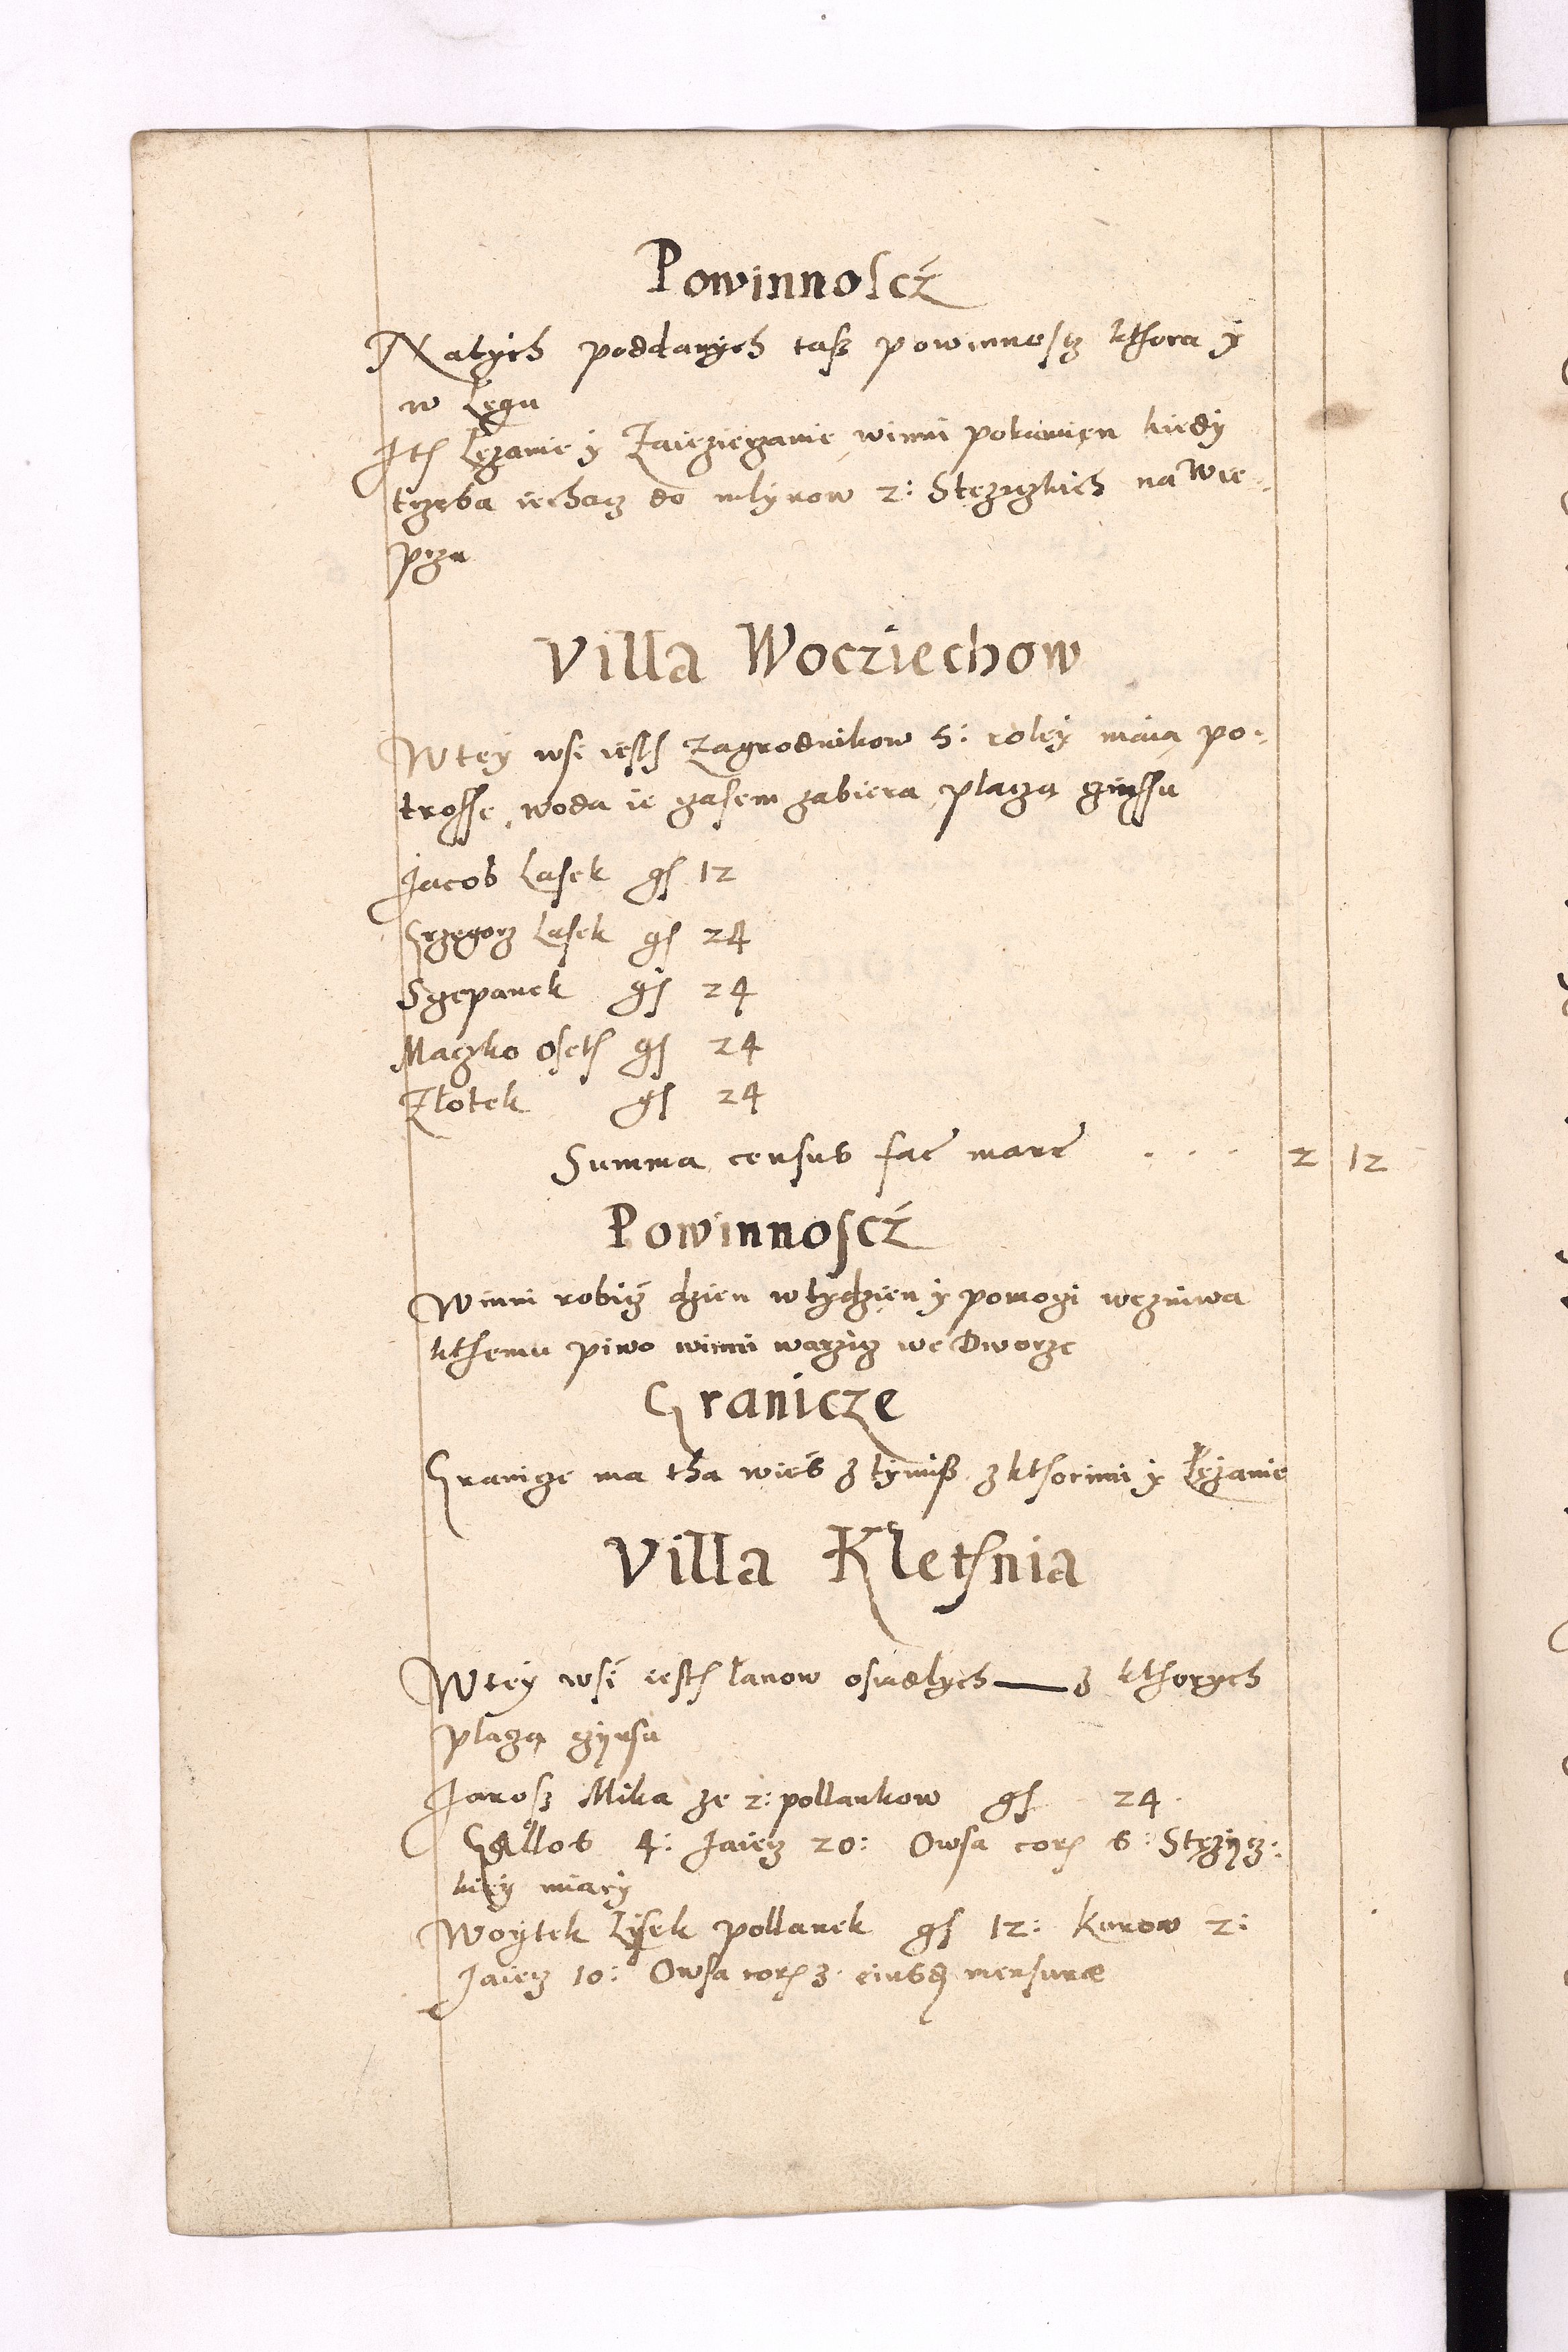 Powinnoscź
Natych poddanych taß powinnoscz kthora y
w Łęgu
Ith Łęzanie y Zaiezierzanie winni pokamięn kiedy
trzeba iechacz do młynow 2: Stęzyczkich na Wie-
przu
Villa Wocziechow
Wtey wsi iesth Zagrodnikow 5: roley maią po-
trosse, woda ie czasem zabiera, placzą czinssu
Jacob Lasek gs 12
Grzegorz Lasek gs 24
Sczepanek gs 24
Maczko oseth gs 24
Złotek gs 24
Summa census fac marc . . . . 2 12
Powinnoscź
Winni robicz dzien wtydzien y pomogi wezniwa
kthemu piwo winni warzicz we Dworze
Granicze
Granicze ma tha wies z tymiß z kthorimi y Łęzanie
Villa Klethnia
Wtey wsi iesth łanow osiadlych — z kthorych
placzą czynsu
Jarosz Mika ze 2: pollankow gs 24
Gallos 4: Jaiecz 20: Owsa cor 6: Stęzycz-
kiey miary
Woytek Lysek pollanek gs 12: Kurow 2:
Jaiecz 10: Owsa cor 3. eiusd mensuræ